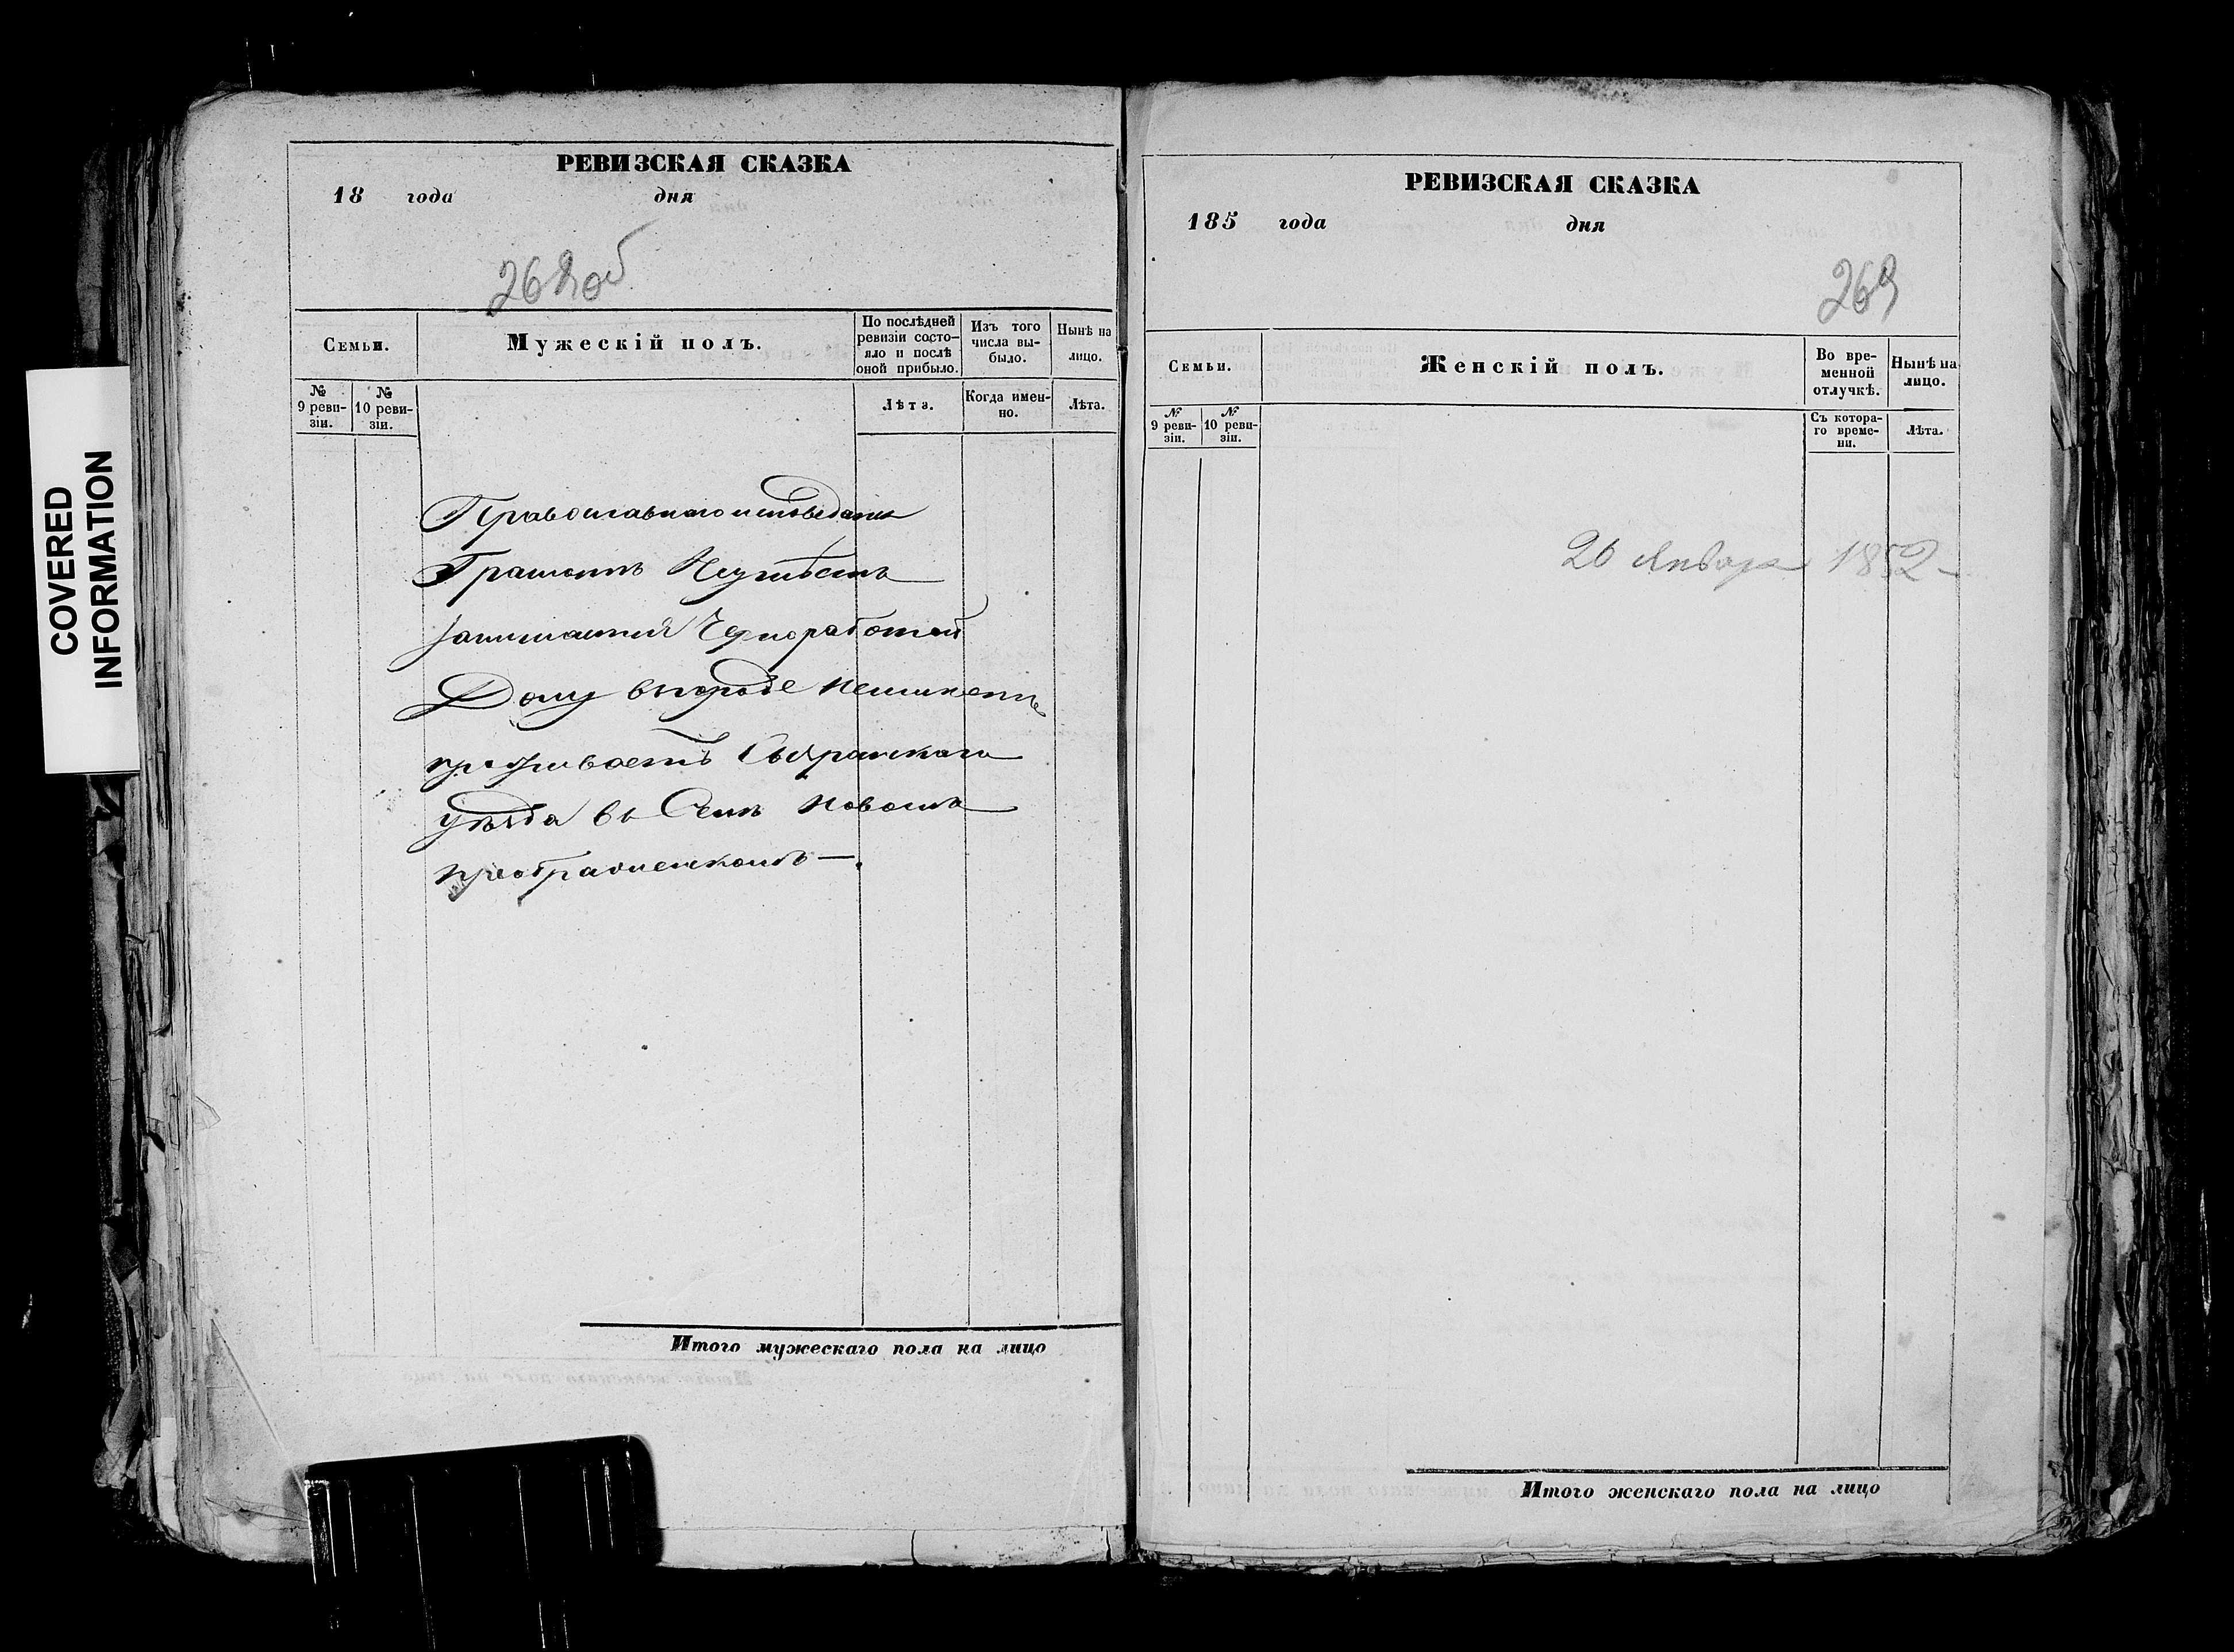 COVERED
INFORMATION
РЕВИЗСКАЯ СКАЗКА
18 года дня
268об
Семьи.
Мужескій полъ.
По послѣдней ревизіи состояло и послѣ оной прибыло.
Изъ того числа выбыло.
Нынѣ на лицо.
№ 9 ревизіи.
№ 10 ревизіи.
Лѣта.
Когда именно.
Лѣта.
Православнаго исповеданія
Грамотѣ Неумѣетъ
занимается Черноработой
Дому вгороде неимеетъ
проживаетъ Сызранскаго
уѣзда во Селѣ Новомъ
преображенскомъ —.
Итого мужескаго пола на лицо
РЕВИЗСКАЯ СКАЗКА
185 года дня
269
Семьи.
Женскій полъ.
Во временной отлучкѣ.
Нынѣ на лицо.
№ 9 ревизіи.
№ 10 ревизіи.
Съ котораго времени.
Лѣта.
26 Января 1852 –
Итого женскаго пола на лицо